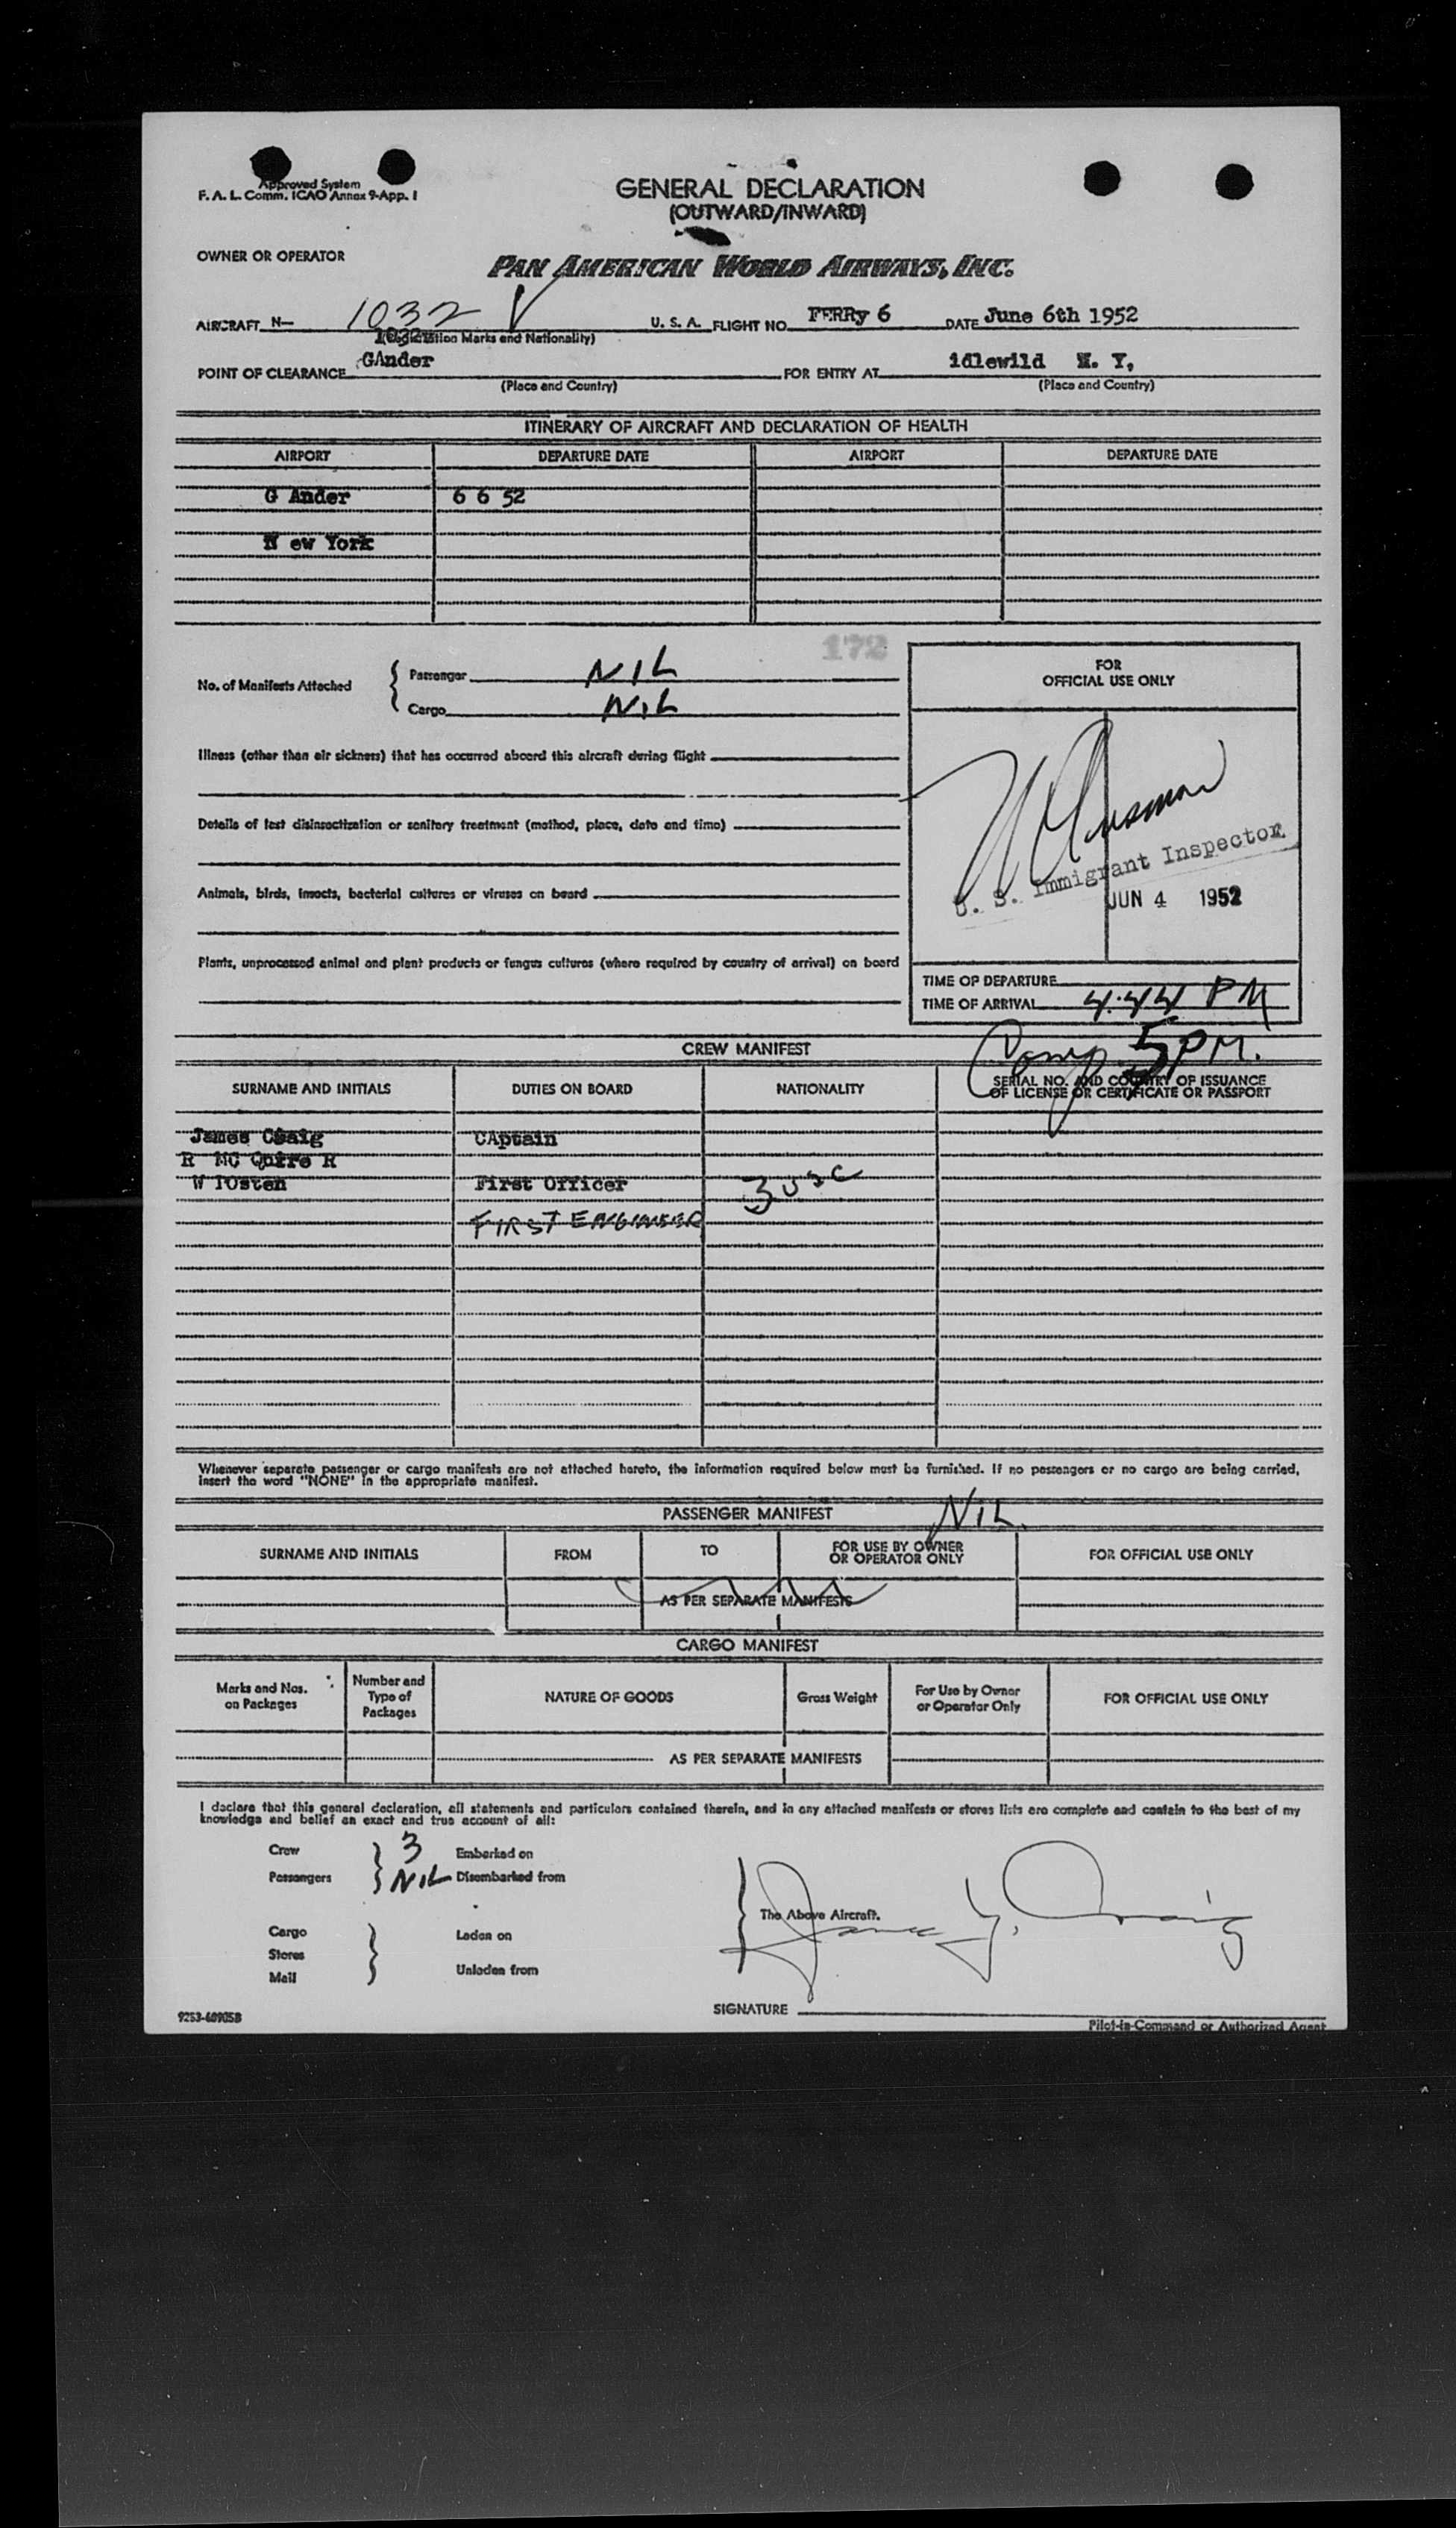 Approved System
F. A. L. Comm. ICAO Annex 9-App. I
GENERAL DECLARATION
(OUTWARD/INWARD)
OWNER OR OPERATOR
PAN AMERICAN WORLD AIRWAYS, INC.
AIRCRAFT N— 1032 V U. S. A. FLIGHT NO. FERRy 6 DATE June 6th 1952
(Registration Marks and Nationality)
POINT OF CLEARANCE GAnder FOR ENTRY AT idlewild N. Y,
(Place and Country) (Place and Country)
ITINERARY OF AIRCRAFT AND DECLARATION OF HEALTH
AIRPORT DEPARTURE DATE AIRPORT DEPARTURE DATE
G Ander 6 6 52
N ew York
172
No. of Manifests Attached { Passenger NIL
Cargo NIL
FOR
OFFICIAL USE ONLY
Illness (other than air sickness) that has occurred aboard this aircraft during flight
Details of last disinsectization or sanitary treatment (method, place, date and time)
Animals, birds, insects, bacterial cultures or viruses on board
Plants, unprocessed animal and plant products or fungus cultures (where required by country of arrival) on board
U. S. Immigrant Inspector
JUN 4 1952
TIME OF DEPARTURE
TIME OF ARRIVAL 4:44 PM
Comp 5 PM.
CREW MANIFEST
SURNAME AND INITIALS DUTIES ON BOARD NATIONALITY SERIAL NO. AND COUNTRY OF ISSUANCE
OF LICENSE OR CERTIFICATE OR PASSPORT
James Craig CAptain
R MC Quire R
W TOsten First Officer 3 USC
FIRST ENGINEER
Whenever separate passenger or cargo manifests are not attached hereto, the information required below must be furnished. If no passengers or no cargo are being carried,
insert the word "NONE" in the appropriate manifest.
PASSENGER MANIFEST NIL
SURNAME AND INITIALS FROM TO FOR USE BY OWNER
OR OPERATOR ONLY FOR OFFICIAL USE ONLY
AS PER SEPARATE MANIFESTS
CARGO MANIFEST
Marks and Nos.
on Packages Number and
Type of
Packages NATURE OF GOODS Gross Weight For Use by Owner
or Operator Only FOR OFFICIAL USE ONLY
AS PER SEPARATE MANIFESTS
I declare that this general declaration, all statements and particulars contained therein, and in any attached manifests or stores lists are complete and contain to the best of my
knowledge and belief an exact and true account of all:
Crew 3 Embarked on
Passengers NIL Disembarked from
The Above Aircraft.
James Y. Craig
Cargo Laden on
Stores
Mail Unladen from
SIGNATURE
9253-60905B
Pilot-in-Command or Authorized Agent